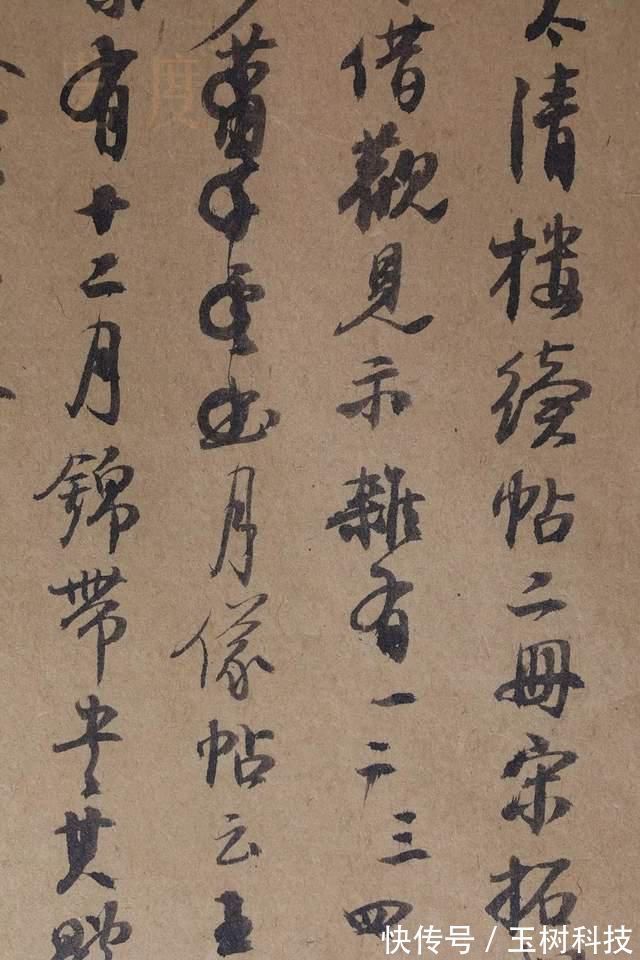 清樓續帖二冊宋拓
借觀見示雜有一二三四
蕭子雲出月儀帖云
有十二月錦帶書其
快传号 / 玉树科技